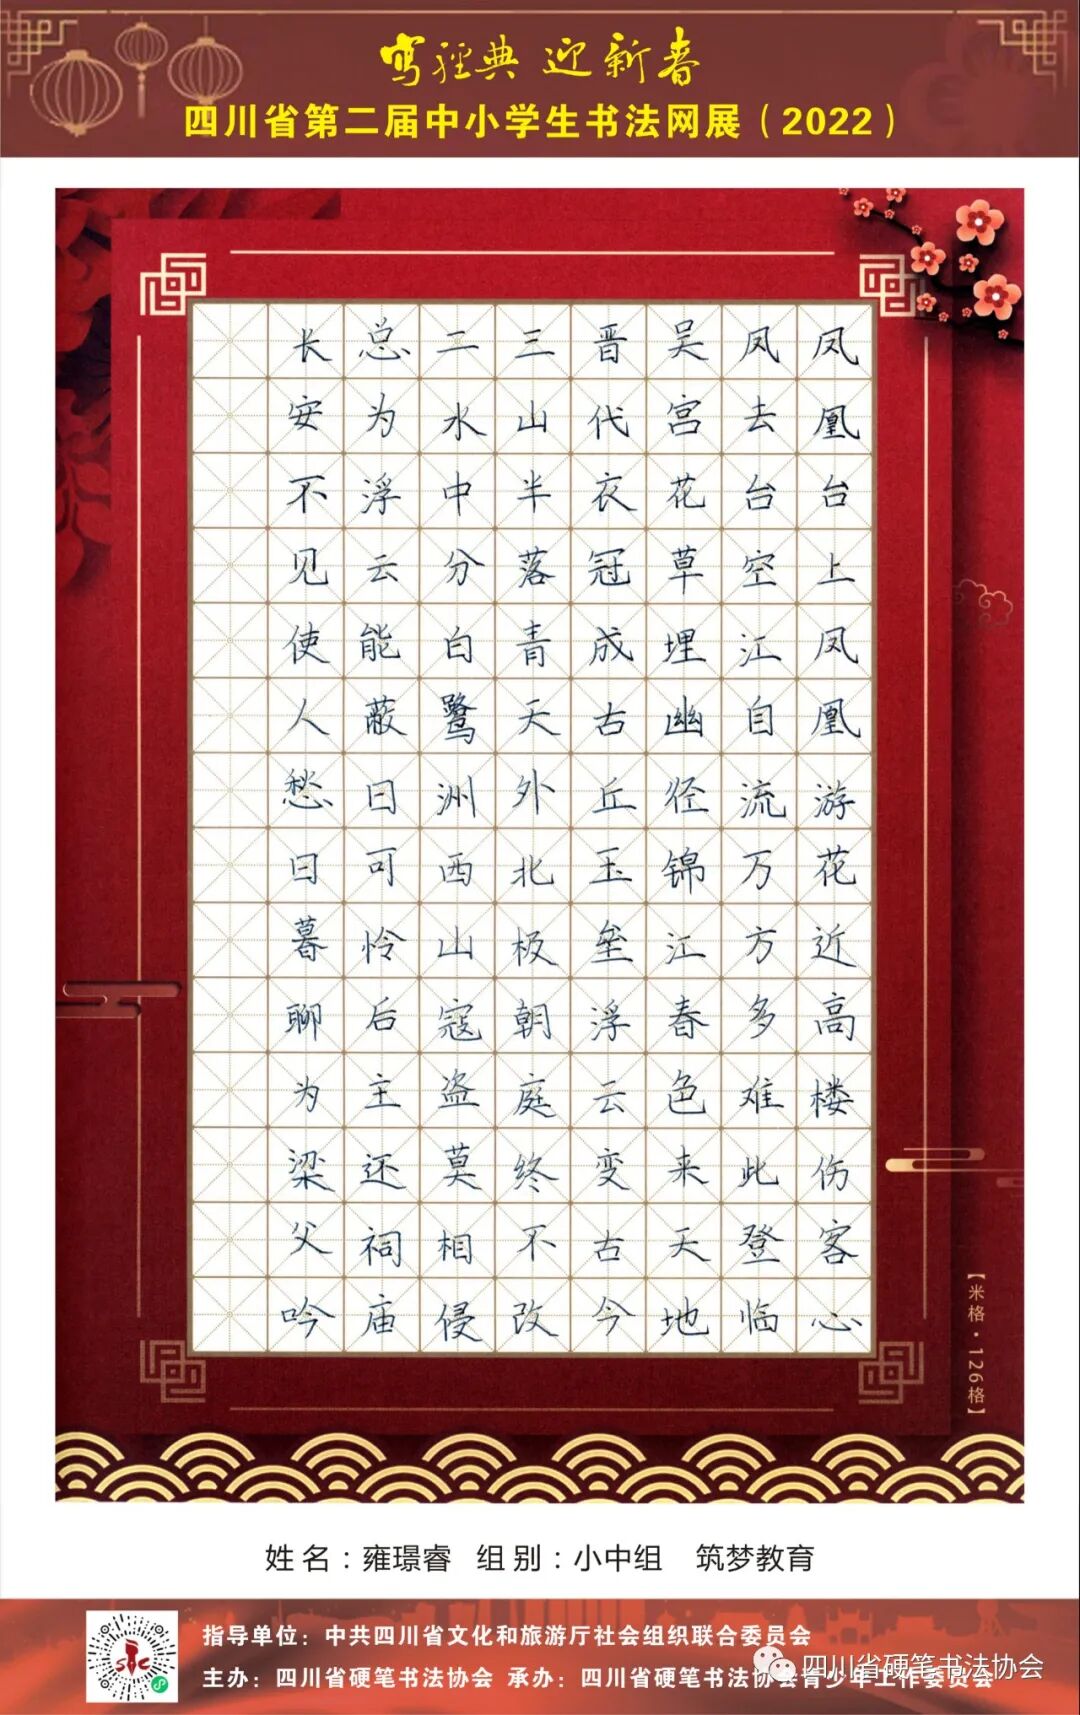 写经典 迎新春
四川省第二届中小学生书法网展（2022）
凤凰台上凤凰游花近高楼伤客心
凤去台空江自流万方多难此登临
吴宫花草埋幽径锦江春色来天地
晋代衣冠成古丘玉垒浮云变古今
三山半落青天外北极朝庭终不改
二水中分白鹭洲西山寇盗莫相侵
总为浮云能蔽日可怜后主还祠庙
长安不见使人愁日暮聊为梁父吟
【米格·126格】
姓名：雍璟睿 组别：小中组 筑梦教育
指导单位：中共四川省文化和旅游厅社会组织联合委员会
主办：四川省硬笔书法协会 承办：四川省硬笔书法协会青少年工作委员会
四川省硬笔书法协会